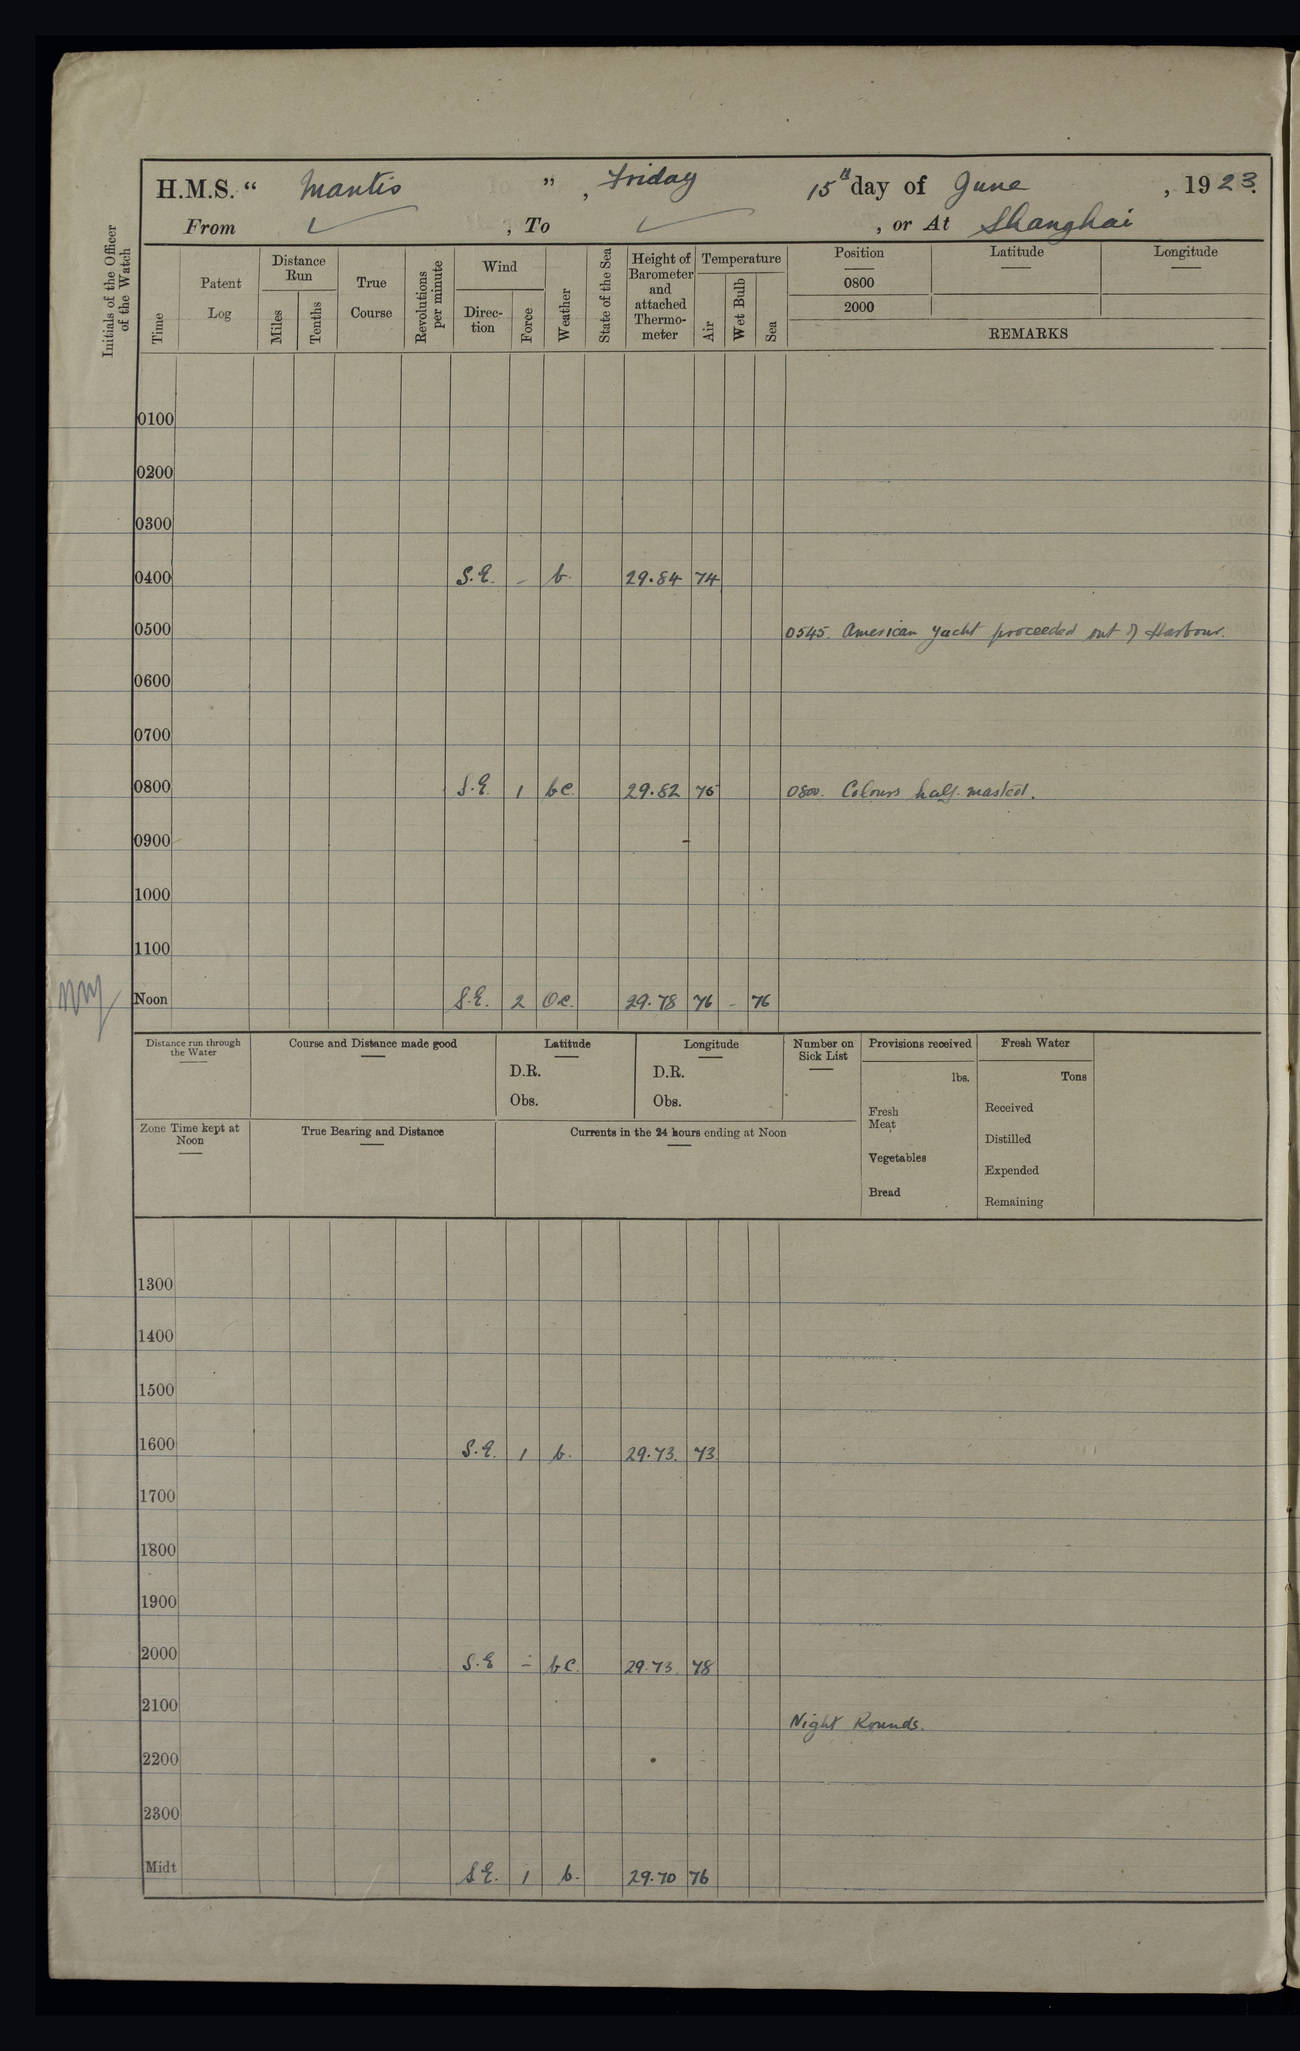 H.M.S. “ Mantis ”, Friday 15th day of June, 1923.
From ✓, To ✓, or At Shanghai
Initials of the Officer of the Watch
Time
Patent Log
Distance Run
Miles
Tenths
True Course
Revolutions per minute
Wind
Direc-tion
Force
Weather
State of the Sea
Height of Barometer and attached Thermo-meter
Temperature
Air
Wet Bulb
Sea
Position
0800
2000
Latitude
Longitude
REMARKS
0100
0200
0300
0400 S.E. - b. 29.84 74
0500 0545. American Yacht proceeded out of Harbour.
0600
0700
0800 S.E. 1 bc. 29.82 76 0800. Colours half-masted.
0900
1000
1100
Noon S.E. 2 oc. 29.78 76 - 76
Distance run through the Water
Course and Distance made good
Latitude
D.R.
Obs.
Longitude
D.R.
Obs.
Number on Sick List
Provisions received
lbs.
Fresh Meat
Vegetables
Bread
Fresh Water
Tons
Received
Distilled
Expended
Remaining
Zone Time kept at Noon
True Bearing and Distance
Currents in the 24 hours ending at Noon
1300
1400
1500
1600 S.E. 1 b. 29.73. 73
1700
1800
1900
2000 S.E - bc. 29.73. 78
2100 Night Rounds.
2200
2300
Midt S.E. 1 b. 29.70 76